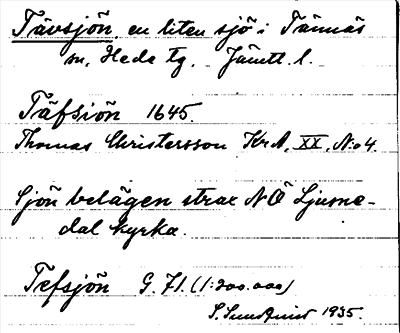 Tävsjön, en liten sjö i Tännäs
sn, Hede tg. Jämtl. l.
Täfsiön 1645
Thomas Christersson KrA, XX, N:o 4.
Sjön belägen strax NÖ Ljusne-
dal kyrka.
Tefsjön G. 71. (1:200.000)
S. Sundquist 1935.